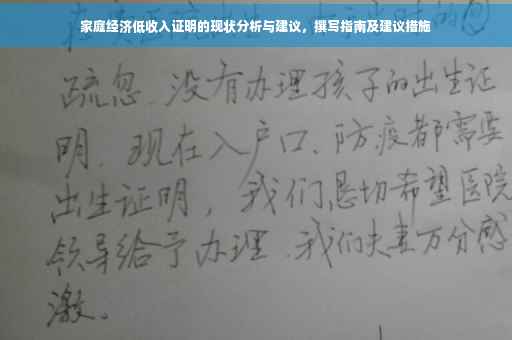 家庭经济低收入证明的现状分析与建议，撰写指南及建议措施
疏忽、没有办理孩子的出生证
明、现在入户口、防疫都需要
出生证明，我们恳切希望医院
领导给予办理、我们夫妻万分感
激。